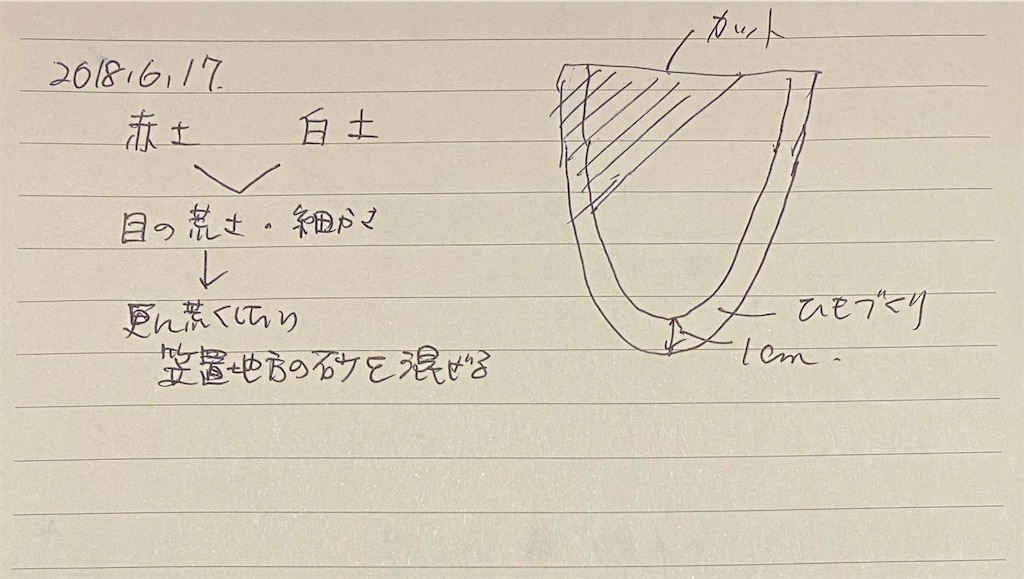 2018.6.17.
赤土 白土
目の荒土・細かさ
更に荒くしたい
笠置地方の砂を混ぜる
カット
ひもづくり
1cm.